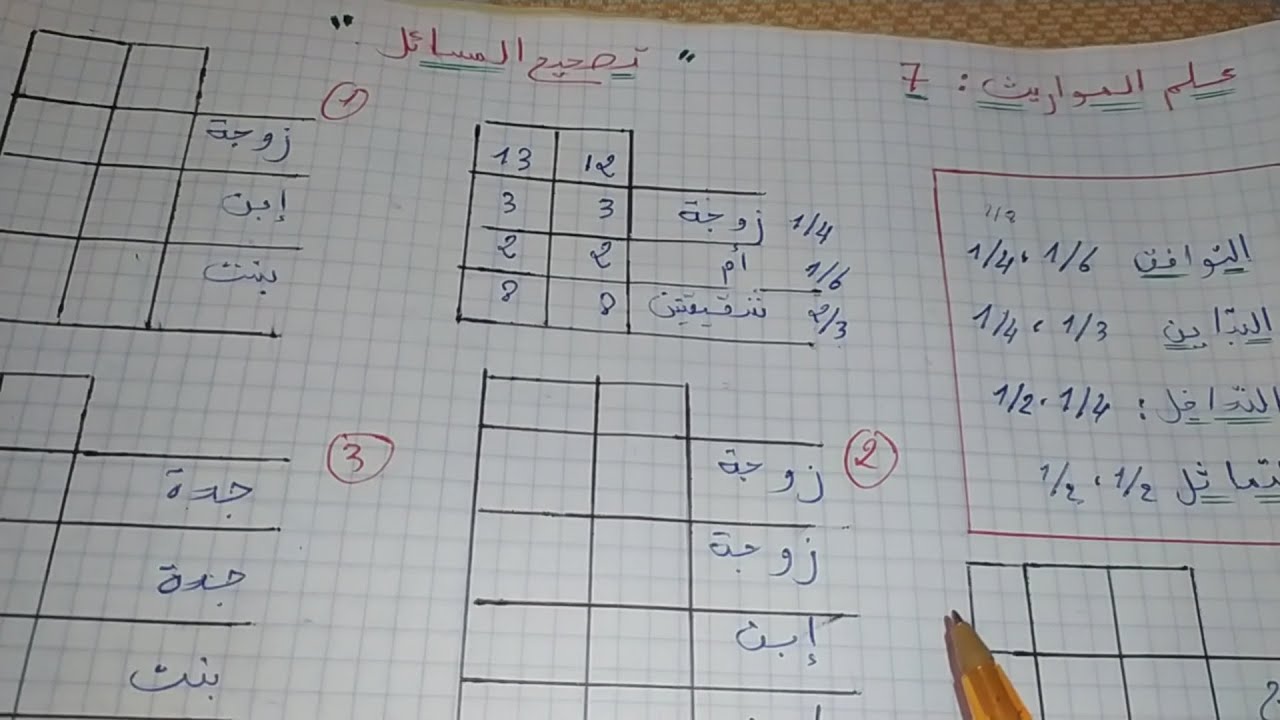 علم المواريث : 7
" تصحيح المسائل "
1/2
التوافق 1/6 ، 1/4
التباين 1/3 ، 1/4
التداخل : 1/4 ، 1/2
تماثل 1/2 ، 1/2
12 13
1/4 زوجة 3 3
1/6 أم 2 2
2/3 شقيقتين 8 8
1
زوجة
إبن
بنت
2
زوجة
زوجة
إبن
3
جدة
جدة
بنت